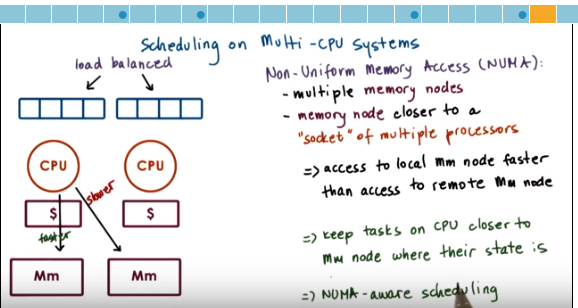 Scheduling on Multi-CPU Systems
load balanced
CPU
CPU
slower
$
$
faster
Mm
Mm
Non-Uniform Memory Access (NUMA):
- multiple memory nodes
- memory node closer to a
"socket" of multiple processors
=> access to local mm node faster
than access to remote mm node
=> keep tasks on CPU closer to
mm node where their state is
=> NUMA-aware scheduling